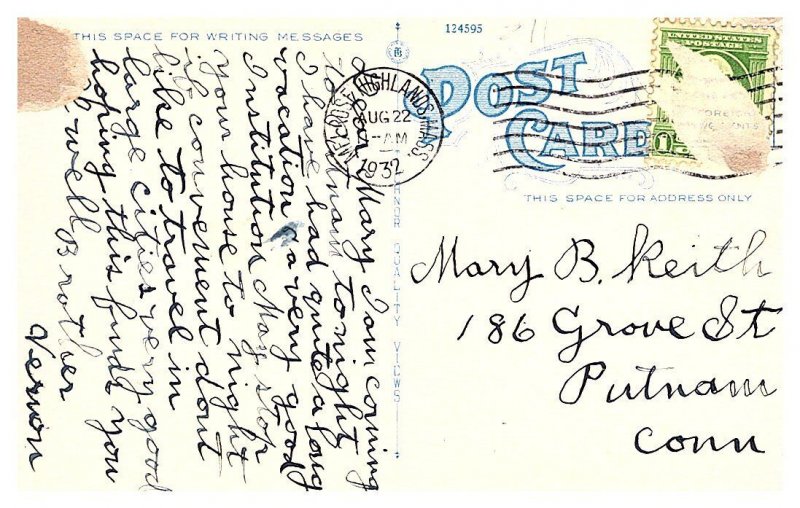 THIS SPACE FOR WRITING MESSAGES
Dear Mary I am coming
to Putnam tonight
I have had quite a long
vacation & a very good
Institution May stop
your house to night
if convement dont
like to travel in
large cities very good
hoping this finds you
well Brother
Vernon
124595
MELROSE HIGHLANDS, MASS.
AUG 22
-AM
1932
POST
CARD
UNITED STATES
POSTAGE
1
THIS SPACE FOR ADDRESS ONLY
QUALITY VIEWS
Mary B. Keith
186 Grove St
Putnam
Conn